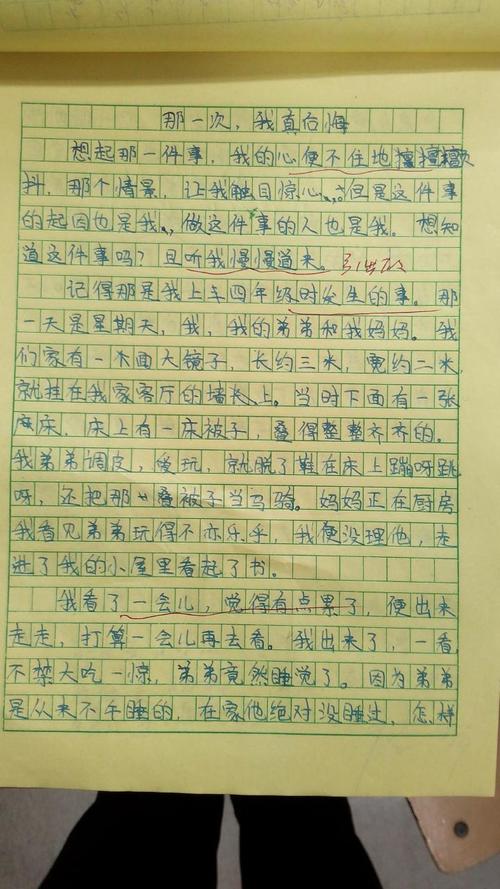 那一次，我真后悔
想起那一件事，我的心便不住地擅擅
抖，那个情景，让我触目惊心。但是这件事
的起因也是我，做这件事的人也是我。想知
道这件事吗？且听我慢慢道来。引出下文
记得那是我上车四年级时发生的事。那
一天是星期天，我，我的弟弟和我妈妈。我
们家有一木面大镜子，长约三米，宽约二米，
就挂在我家客厅的墙长上。当时下面有一张
床床，床上有一床被子，叠得整整齐齐的。
我弟弟调皮，爱玩，就脱了鞋在床上蹦呀跳
呀，还把那叠被子当马骑。妈妈正在厨房
我看见弟弟玩得不亦乐乎，我便没理他，走
进了我的小屋里看起了书。
我看了一会儿，觉得有点累了，便出来
走走，打算一会儿再去看。我出来了，一看，
不禁大吃一惊，弟弟竟然睡觉了。因为弟弟
是从来不午睡的，在家他绝对没睡过，怎样